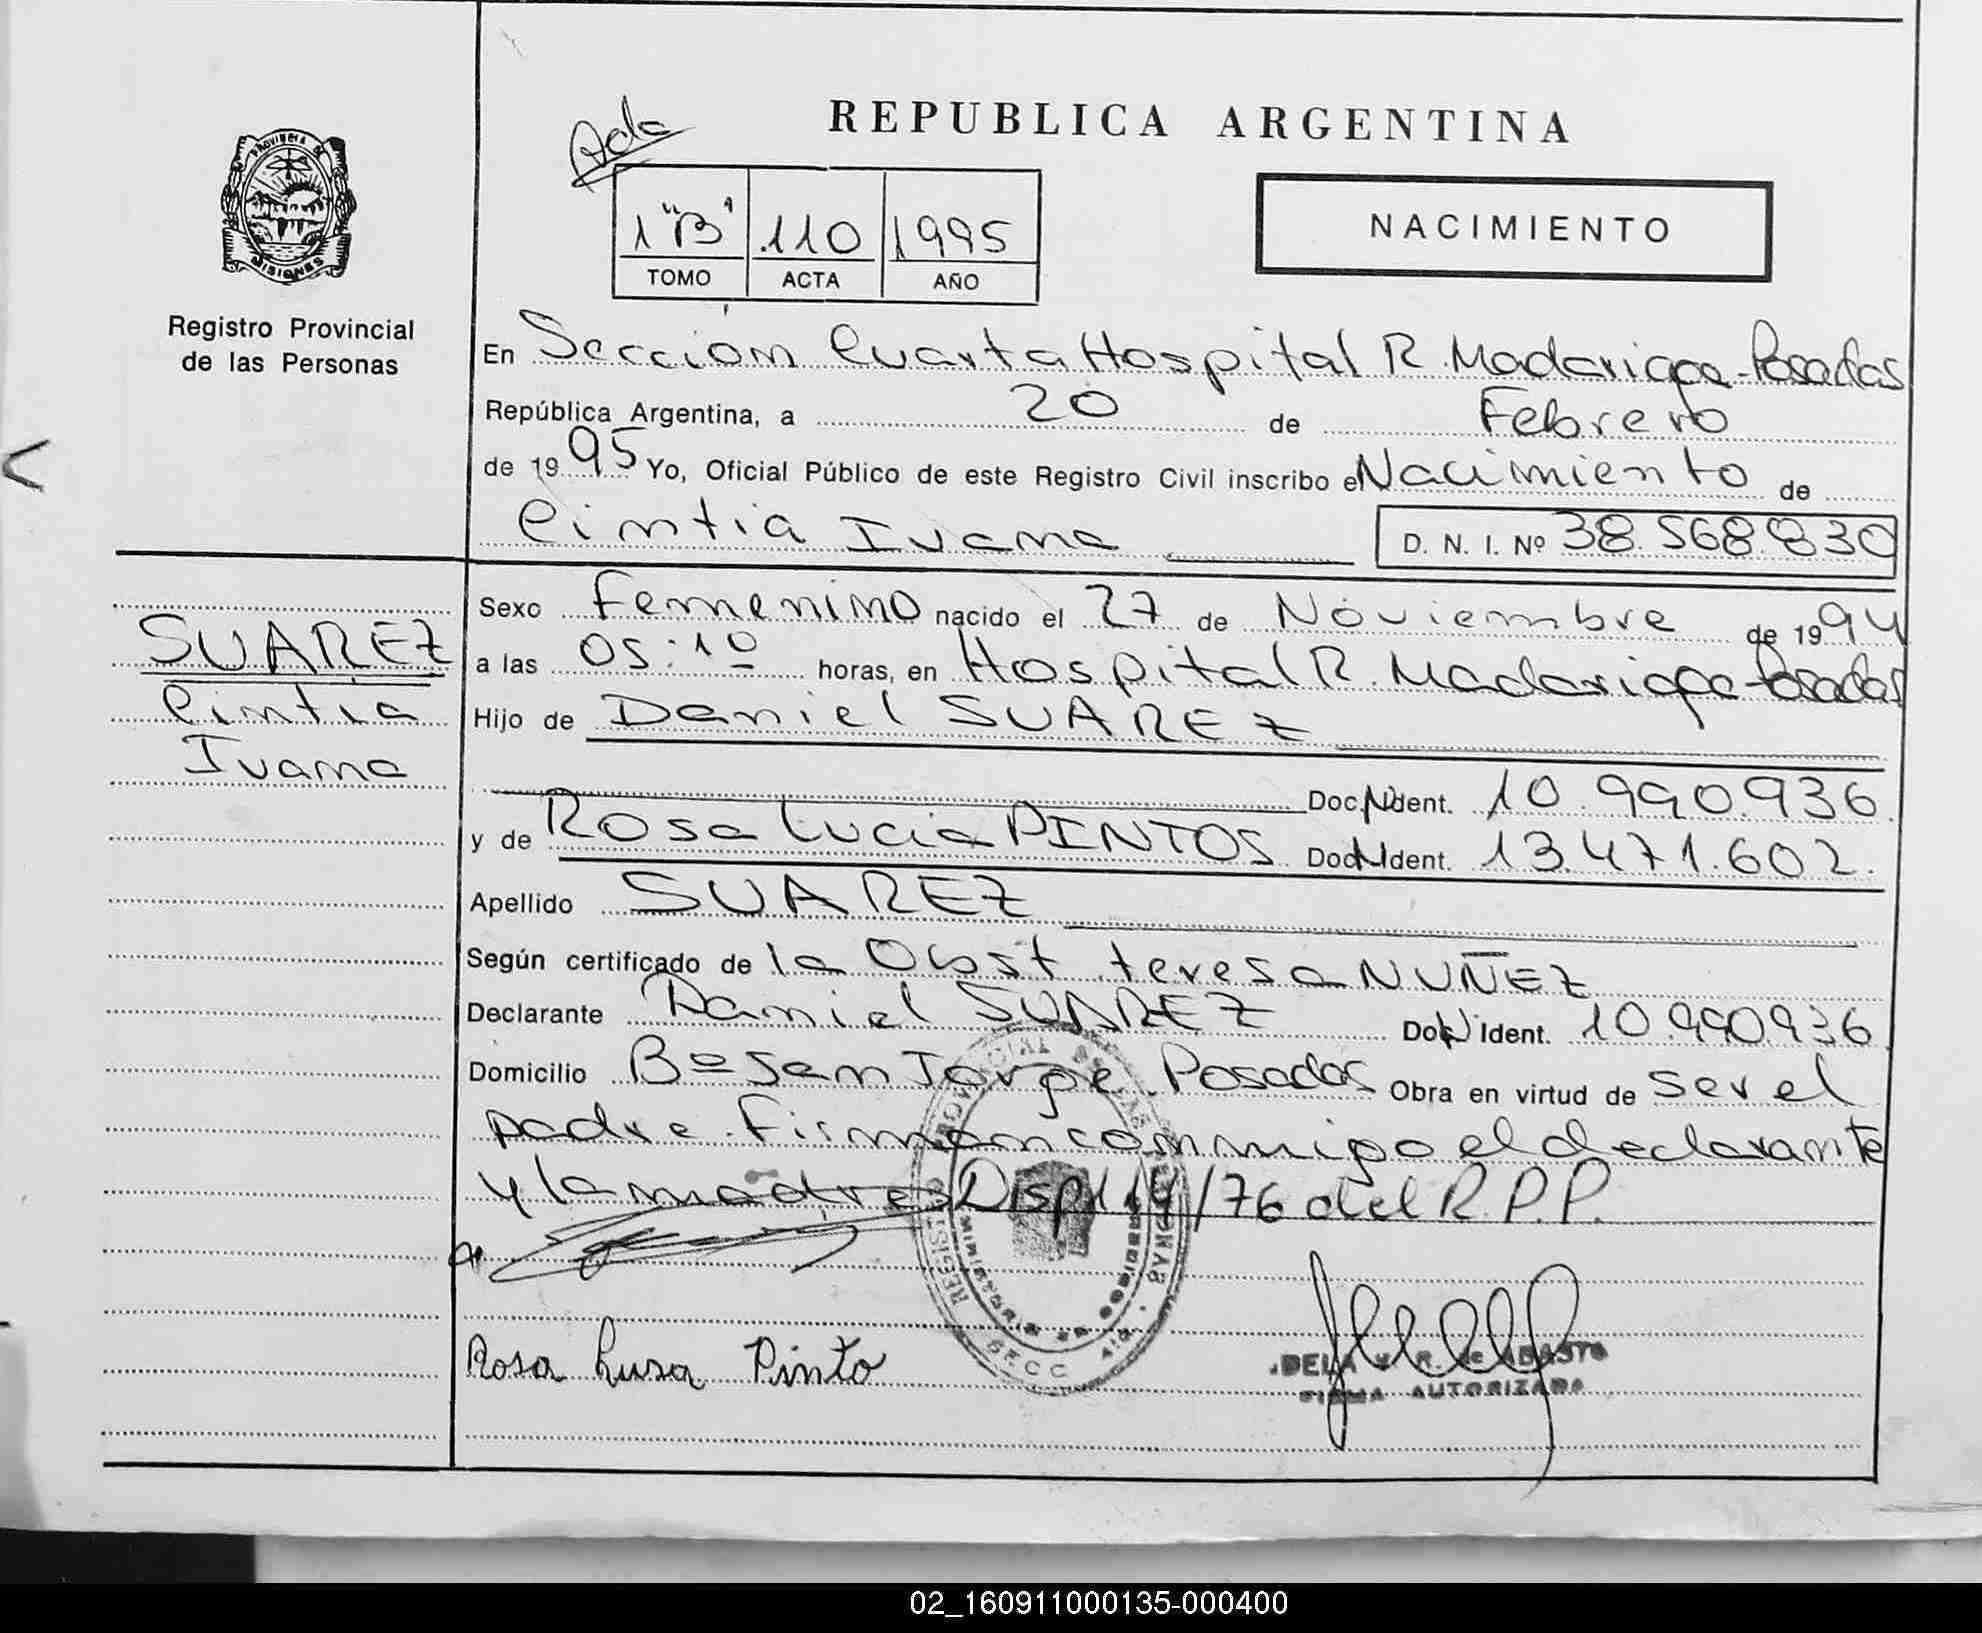 REPUBLICA ARGENTINA
Acta
1 "B" 110 1995
TOMO ACTA AÑO
NACIMIENTO
PROVINCIA DE
MISIONES
Registro Provincial
de las Personas
En Sección Cuarta Hospital R. Madariaga - Posadas
República Argentina, a 20 de Febrero
de 1995 Yo, Oficial Público de este Registro Civil inscribo el Nacimiento de
Cintia Ivana D. N. I. Nº 38.568.830
SUAREZ
Cintia
Ivana
Sexo Femenino nacido el 27 de Noviembre de 1994
a las 05:10 horas, en Hospital R. Madariaga Posadas
Hijo de Daniel SUAREZ
Doc. Ident. 10.990.936
y de Rosa Lucia PINTOS Doc. Ident. 13.471.602.
Apellido SUAREZ
Según certificado de la Obst teresa NUÑEZ
Declarante Daniel SUAREZ Doc. Ident. 10.990.936
Domicilio Bº San Jorge Posadas Obra en virtud de ser el
padre. Firman conmigo el declarante
y la madre Disp. /76 del R.P.P.
Rosa Lusa Pinto
R. de ABASTO
FIRMA AUTORIZADA
02_160911000135-000400